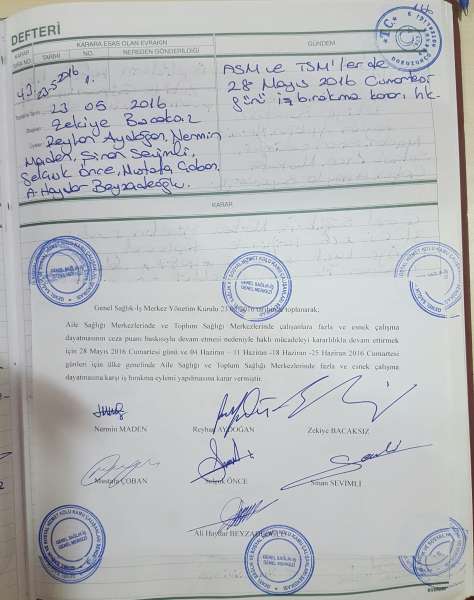 DEFTERİ
KARARA ESAS OLAN EVRAKIN
GÜNDEM
KARAR
SIRA NO.
TARİHİ
NO.
NEREDEN GÖNDERİLDİĞİ
43.
23.5.2016
1.
ASM ve TSM'lerde
28 Mayıs 2016 Cumartesi
günü iş bırakma kararı hk.
23 05 2016
Zekiye Bacaksız
Reyhan Aydoğan, Nermin
Maden, Sinan Sevimli,
Selçuk Önce, Mustafa Çoban,
A. Haydar Beyzadeoğlu.
KARAR
Genel Sağlık-İş Merkez Yönetim Kurulu 23.05.2016 tarihinde toplanarak;
Aile Sağlığı Merkezlerinde ve Toplum Sağlığı Merkezlerinde çalışanlara fazla ve esnek çalışma
dayatmasının ceza puanı baskısıyla devam etmesi nedeniyle haklı mücadeleyi kararlılıkla devam ettirmek
için 28 Mayıs 2016 Cumartesi günü ve 04 Haziran – 11 Haziran -18 Haziran -25 Haziran 2016 Cumartesi
günleri için ülke genelinde Aile Sağlığı ve Toplum Sağlığı Merkezlerinde fazla ve esnek çalışma
dayatmasına karşı iş bırakma eylemi yapılmasına karar vermiştir.
Nermin MADEN
Reyhan AYDOĞAN
Zekiye BACAKSIZ
Mustafa ÇOBAN
Selçuk ÖNCE
Sinan SEVİMLİ
Ali Haydar BEYZADEOĞLU
GENEL SAĞLIK-İŞ
GENEL MERKEZİ